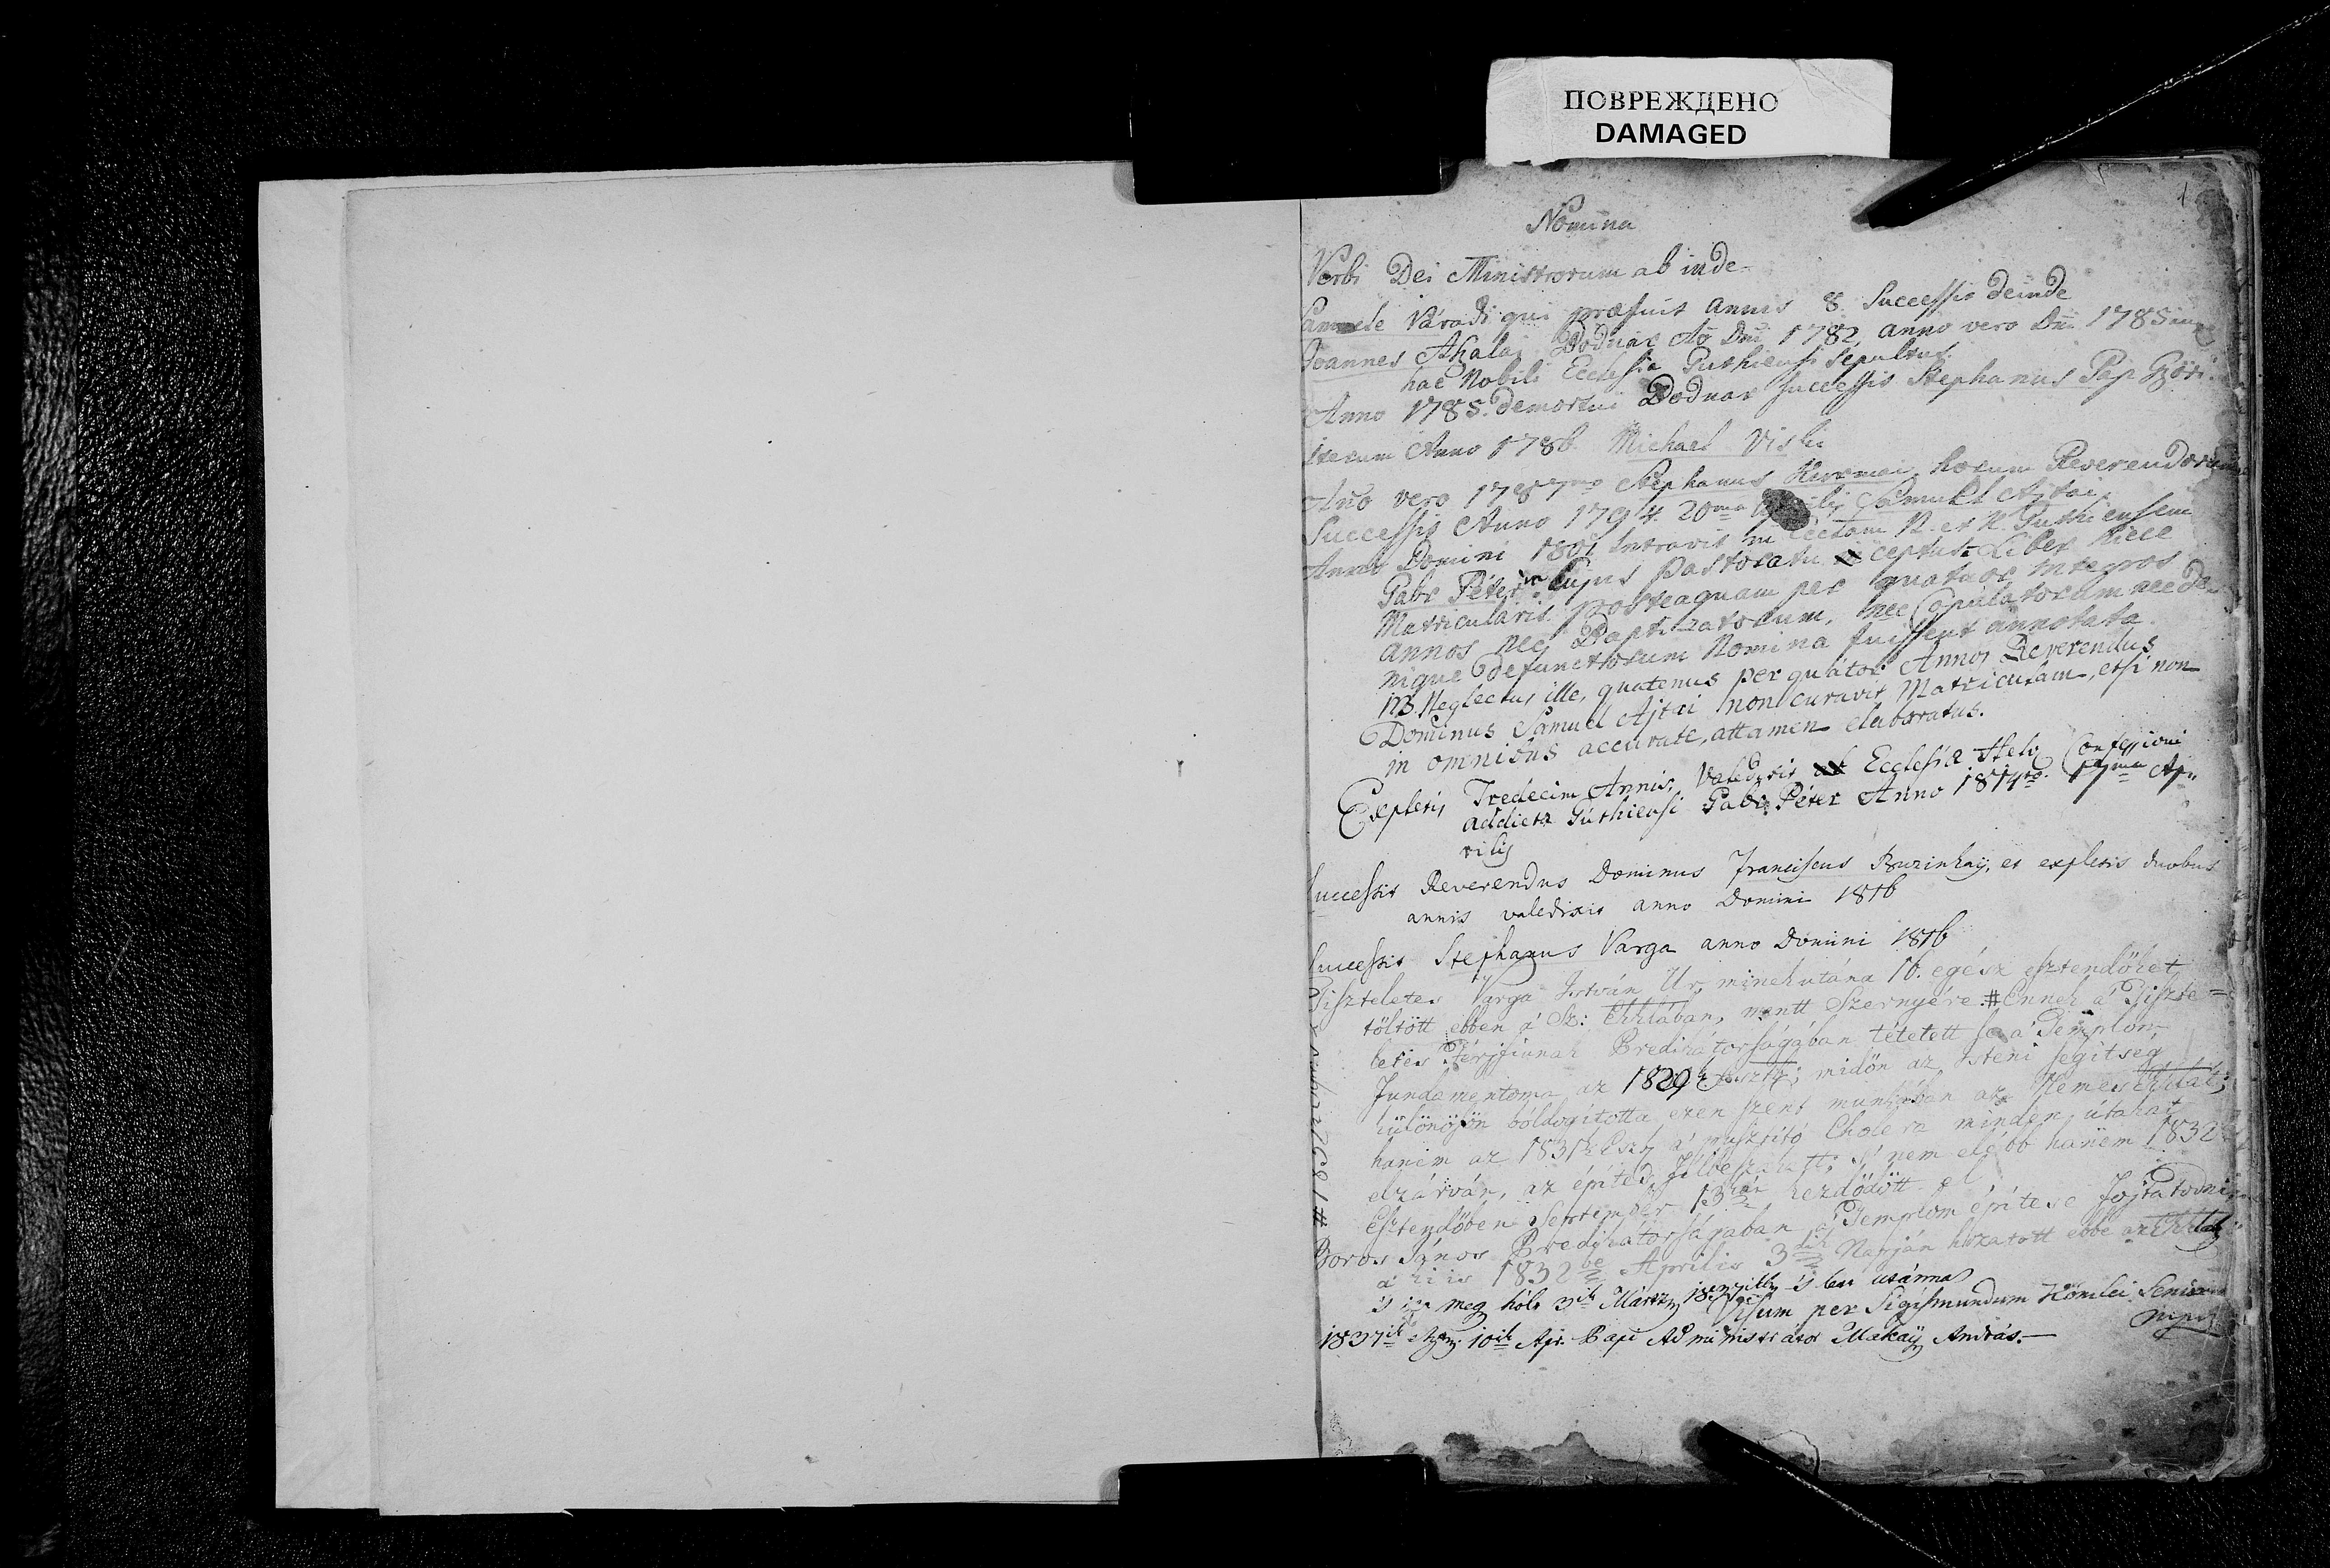 ПОВРЕЖДЕНО
DAMAGED
1
Nomina
Verbi Dei Ministrorum ab inde
Samuele Váradi qui præfuit annis 8. Successit deinde
Joannes Akalai Aõ Dni 1782, anno vero Dni 1785 in
hac Nobili Ecclesia Puthiensi sepultus.
Anno 1785. demortui successit Stephanus Pap
iterum Anno 1786. Michael Viski
Año vero 1787mo Stephanus horum Reverendorum
Successit Anno 1794. 20ma Samuel Ajtai.
Anno Domini 1801 Intravit in N. et N.
Gabr Péter in Cujus Pastoratu ceptus Liber hicce
Matricularis. Posteaquam per quatuor integros
annos nec Baptizatorum, nec Copulatorum nec de-
nique defunctorum Nomina fuissent annotata.
NB. Neglectus ille, quatenus per quator Annos Reverendus
Dominus Samuel Ajtai non curavit Matriculam, etsi non
in omnibus accurate, attamen elaboratus.
Expletis Tredecim Annis, Valedixit Ecclesiæ Helv Confessioni
addictæ Guthiensi Gabr. Péter Anno 1814to. 17ma Ap-
rilis
Successit Reverendus Dominus Franciscus Buzinkay, et expletis duobus
annis valedixit anno Domini 1816
Successit Stephanus Varga anno Domini 1816
Tiszteletes Varga István Úr, minekutána 16. egész esztendőket
töltött ebben a' Sz: Ekklában, mentt Szernyére # Ennek a' Tiszte=
letes Férjfiunak Predikátorságában tétetett le a' Templom
Fundamentoma az 1829k Eszt; midőn az Isteni segítség
különösön bóldogította ezen szent munkában az Nemes Ekklát;
hanem az 1831k Eszt a' pusztító Cholera minden útakat
elzárván, az építés félbeszakatt; 's nem elébb hanem 1832
Esztendőben September 13kán kezdődött el
Boros János Predikátorságában a' Templom építése fojtatodni
a' ki is 1832be Aprilis 3dik Napján hozatott ebbe az Ekklába
's itt meg hólt 3ik Martz 1837ikbe 's lett utánna
Visum per Sigismundum Komlei Seniorem
mpr
1837ik 10ik Apr. Papi Administrator Makaÿ András.—